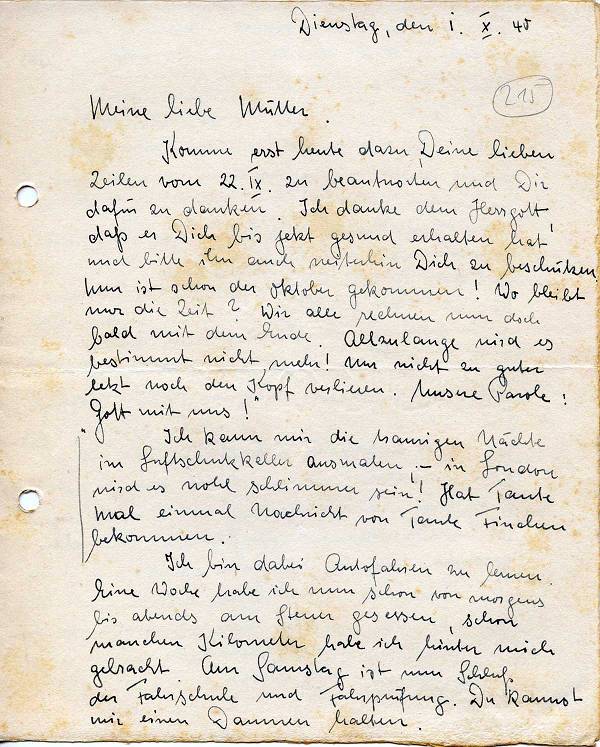 Dienstag, den 1. X. 40
215
Meine liebe Mutter.
Komme erst heute dazu, Deine lieben
Zeilen vom 22. IX. zu beantworten und Dir
dafür zu danken. Ich danke dem Herrgott,
daß er Dich bis jetzt gesund erhalten hat
und bitte ihn auch weiterhin Dich zu beschützen.
Nun ist schon der Oktober gekommen! Wo bleibt
nur die Zeit? Wir alle rechnen nun doch
bald mit dem Ende. Allzulange wird es
bestimmt nicht mehr! Nur nicht zu guter
letzt noch den Kopf verlieren. Unsere Parole:
"Gott mit uns!"
Ich kann mir die traurigen Nächte
im Luftschutzkeller ausmalen, – in London
wird es wohl schlimmer sein! Hat Tante
Mal einmal Nachricht von Tante Finchen
bekommen.
Ich bin dabei Autofahren zu lernen.
Eine Woche habe ich nun schon von morgens
bis abends am Steuer gesessen, schon
manchen Kilometer habe ich hinter mich
gebracht. Am Samstag ist nun Schluß
der Fahrschule und Fahrprüfung. Du kannst
mir einen Daumen halten.